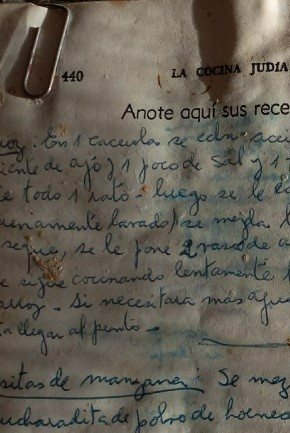 440 LA COCINA JUDIA
Anote aquí sus rece
roz. En 1 cacerola se echa acei
iente de ajo y 1 poco de sal y 1
e todo 1 rato. luego se le e
uenamente lavado) se mezcla
segue, se le pone 2 vasos de a
e sigue cocinando lentamente
arroz. Si necesitara mas agua
ta llegar al punto -
sitas de manzana: Se mez
ucharadita de polvo de hornea